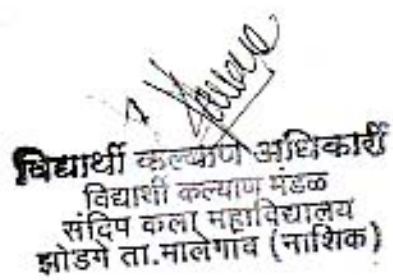 विद्यार्थी कल्याण अधिकारी
विद्यार्थी कल्याण मंडळ
संदिप कला महाविद्यालय
झोडगे ता.मालेगाव (नाशिक)